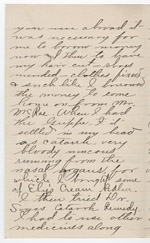 you use abroad it
was necessary for
me to borrow money
now & then to have
my hair cut shoes
mended clothes fixed
& such like I borrowed
the money to come
home on from Mr.
McRae. When I had
the Grippe it
settled in my head
as catarrh very
bloody mucous
running from the
nasal organs for
which I bought some
of Ely's Cream Balm.
I then tried Dr.
Sage's Catarrh Remedy
I had to use other
medicines along